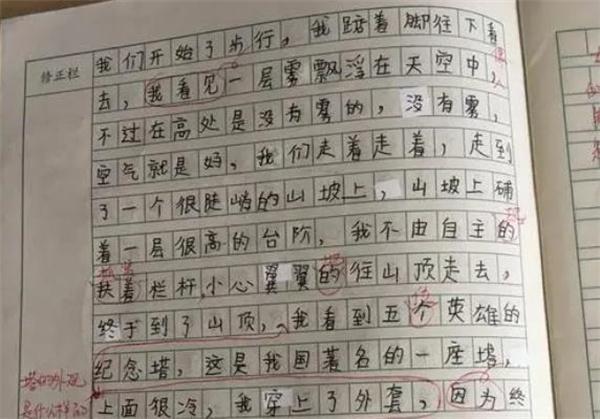 修正栏
我们开始了步行，我踮着脚往下看
去，我看见一层雾飘浮在天空中，
不过在高处是没有雾的，没有雾，
空气就是妈，我们走着走着，走到
了一个很陡峭的山坡上，山坡上铺
着一层很高的台阶，我不由自主的
扶着栏杆，小心翼翼的往山顶走去，
终于到了山顶，我看到五个英雄的
纪念塔，这是我国著名的一座塔，
上面很冷，我穿上了外套，因为终
塔的外观
是什么样的